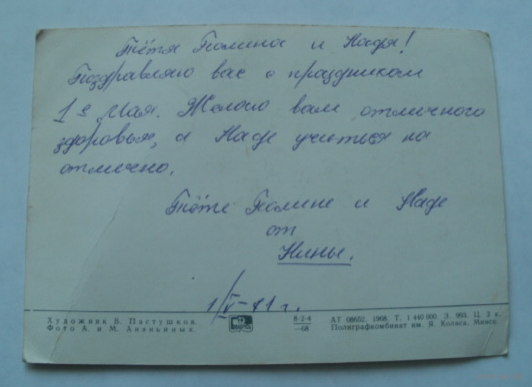 Тётя Полина и Надя!
Поздравляю вас с праздником
1е Мая. Желаю вам отличного
здоровья, а Наде учиться на
отлично.
Тёте Полине и Наде
от
Нины.
1/V-71 г.
Художник В. Пастушков.
Фото А. и М. Ананьиных.
8-2-4
—68
АТ 08602. 1968. Т. 1 440 000 З. 993. Ц. 3 к.
Полиграфкомбинат им. Я. Коласа. Минск.